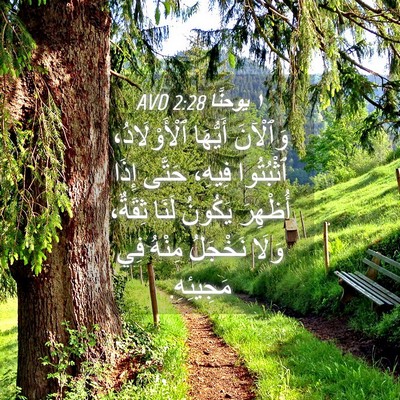 ١ يوحنَّا 2:28 AVD
وَٱلْآنَ أَيُّهَا ٱلْأَوْلَادُ،
ٱثْبُتُوا فِيهِ، حَتَّى إِذَا
أُظْهِرَ يَكُونُ لَنَا ثِقَةٌ،
وَلَا نَخْجَلُ مِنْهُ فِي
مَجِيئِهِ.